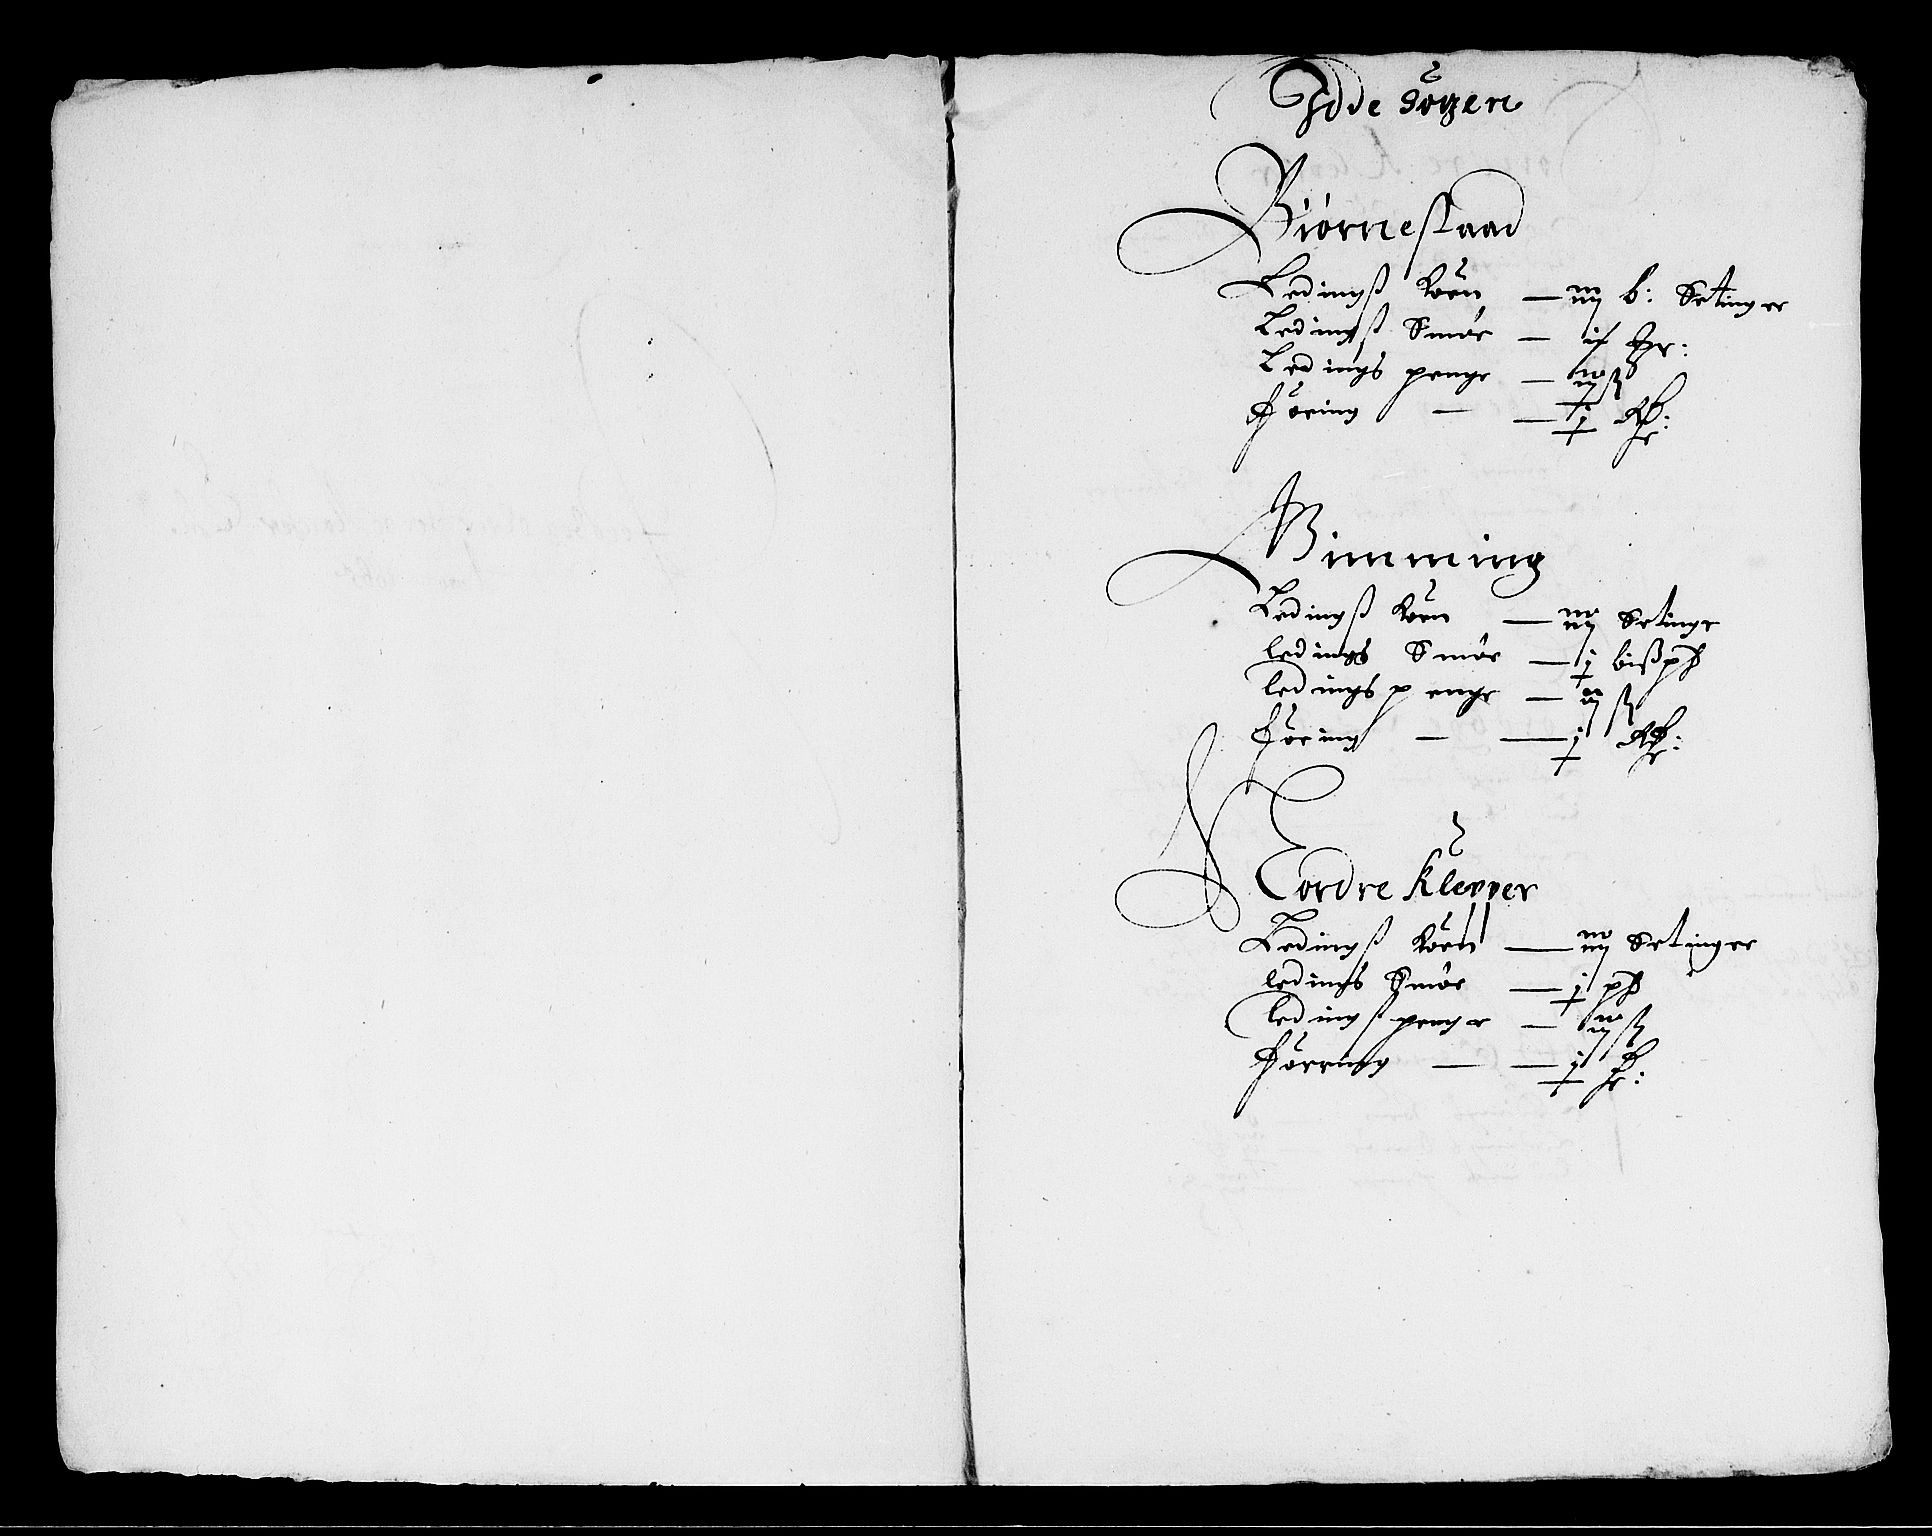 Idde Sogen
Biørnestaad
Ledingß Korn — iiij b: Setinger
Ledingß Smør —
Ledings penge — ß
Føring — — j
Wimming
Ledingß Korn — iiij Setinge
ledings Smør — j bißpd
ledings penge — ß
Føring — — j
Nordre Klepper
Ledingß Korn — iiij Setinger
ledings Smør — j pd
ledingß penge — ß
Førring — — j